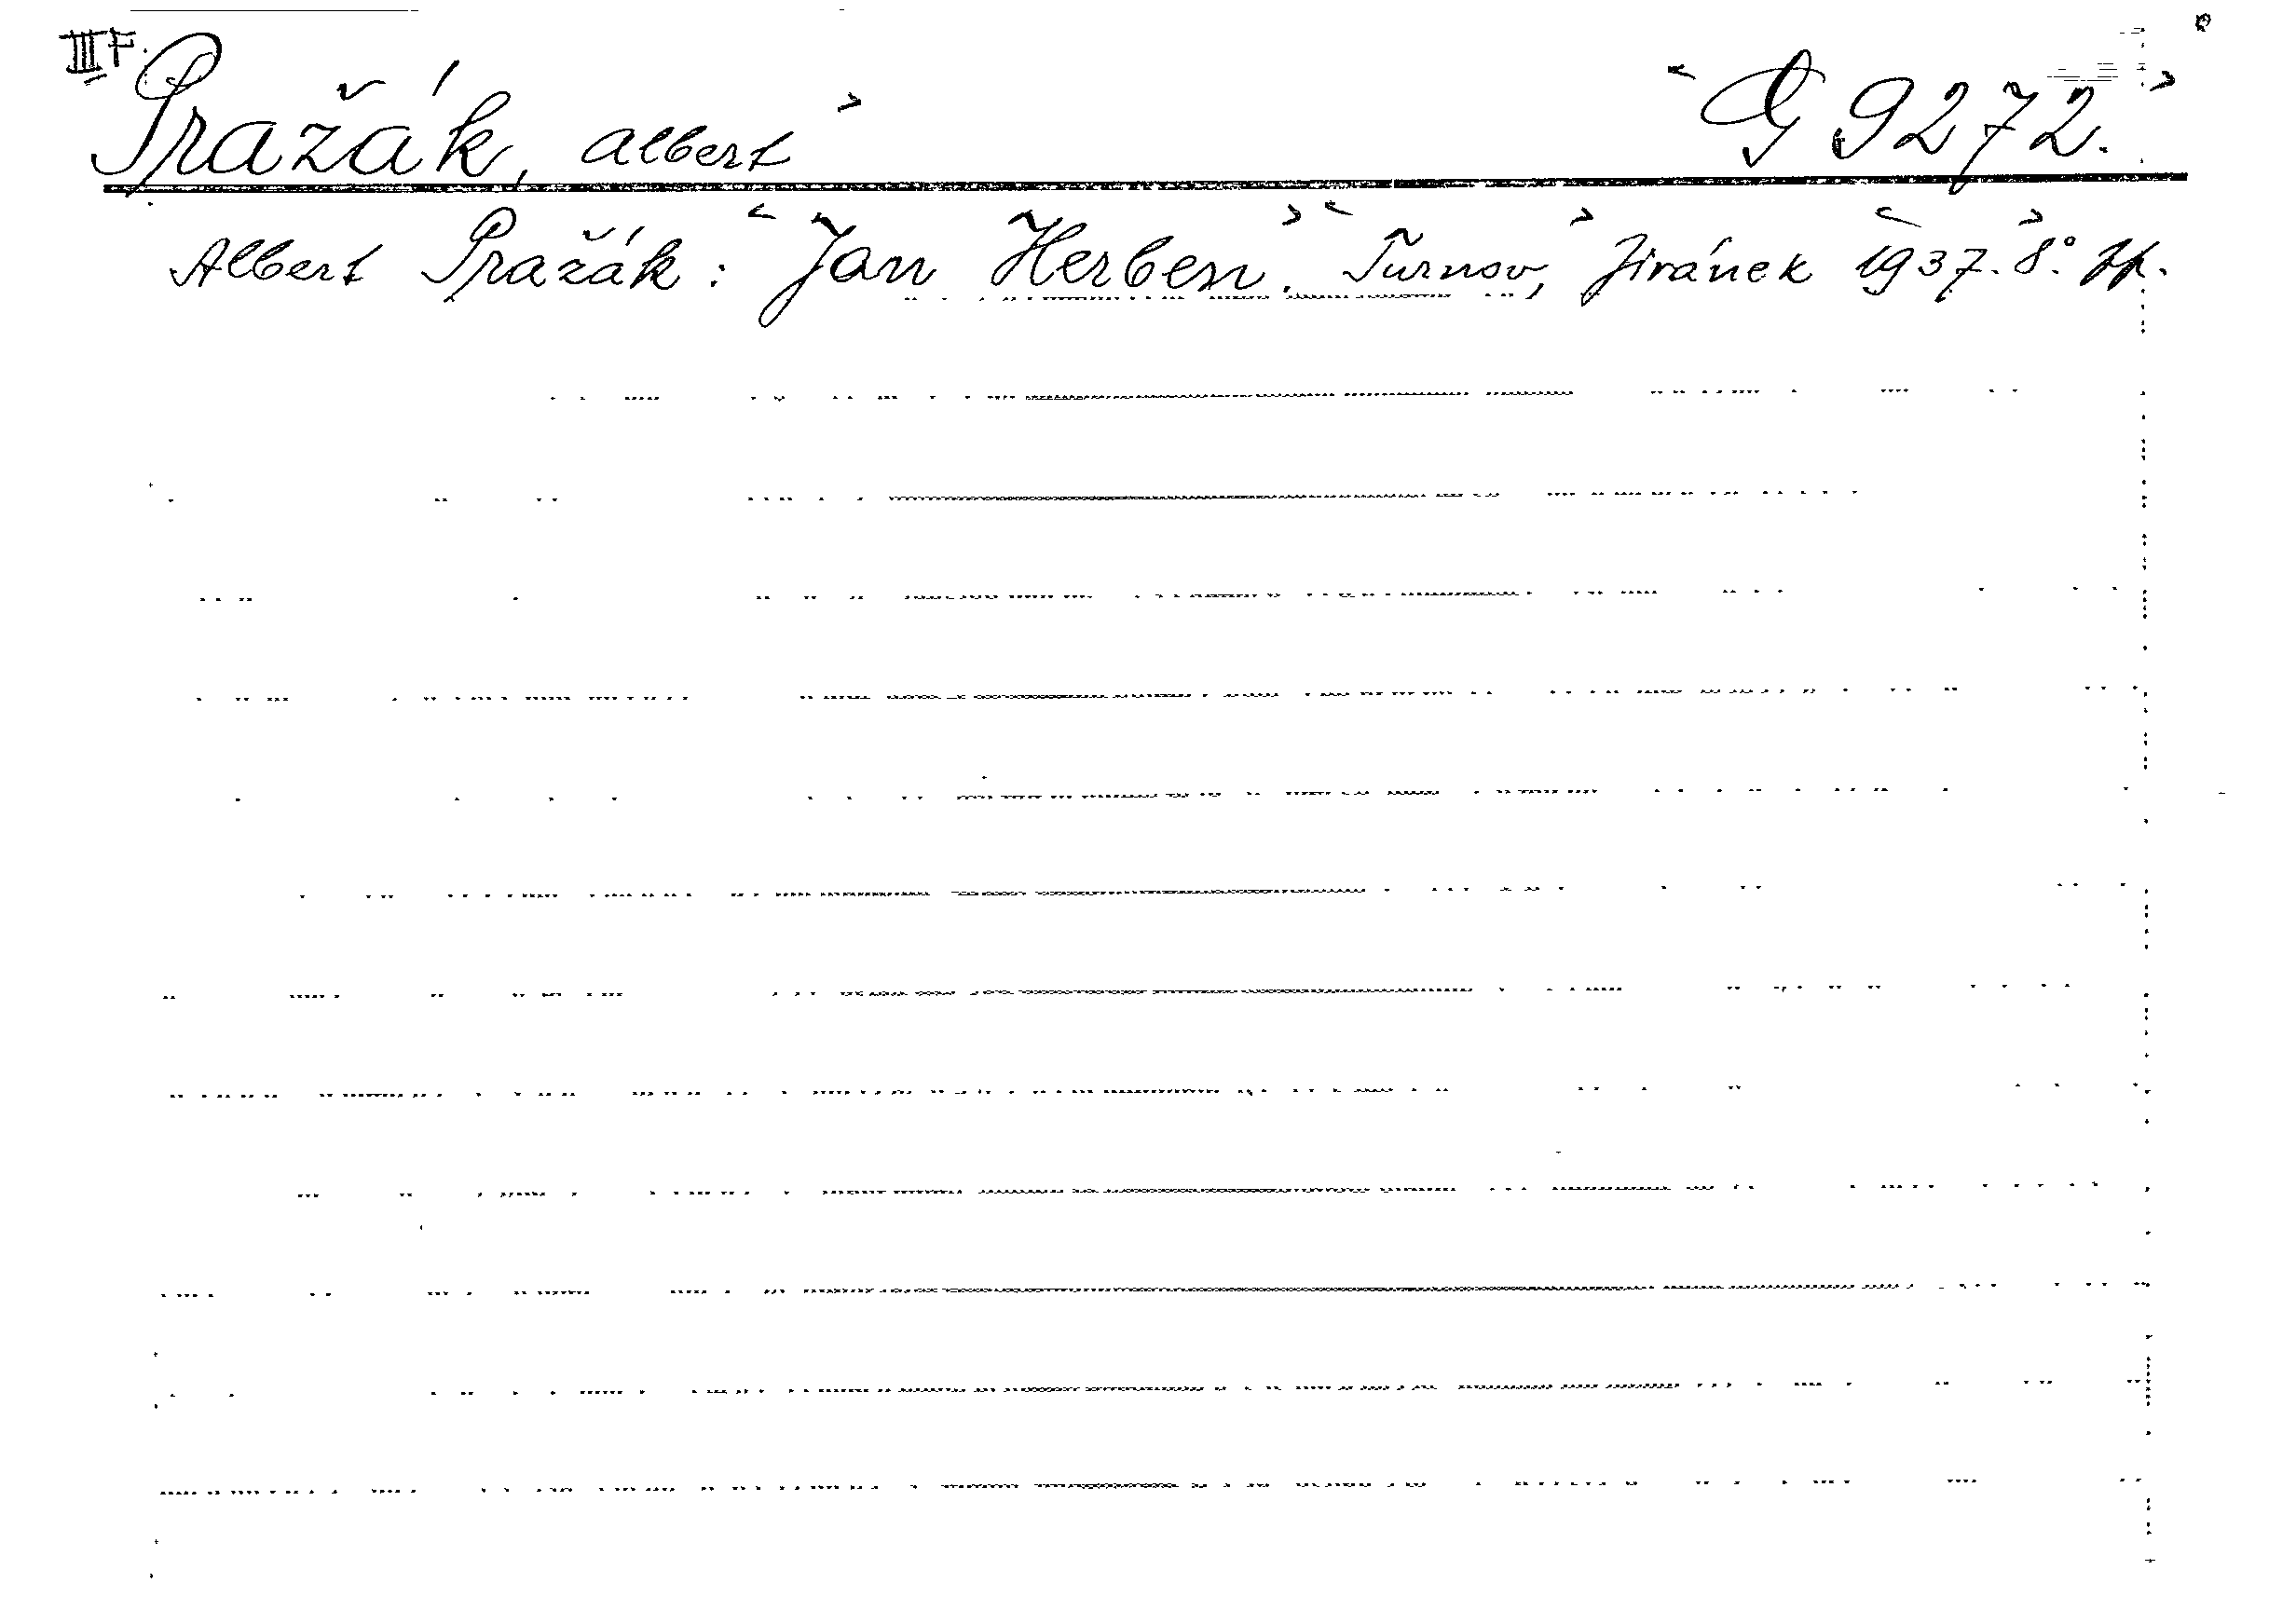 III F.
Pražák, Albert G 9272.
Albert Pražák: Jan Herben. Turnov, Jiránek 1937. 8°.